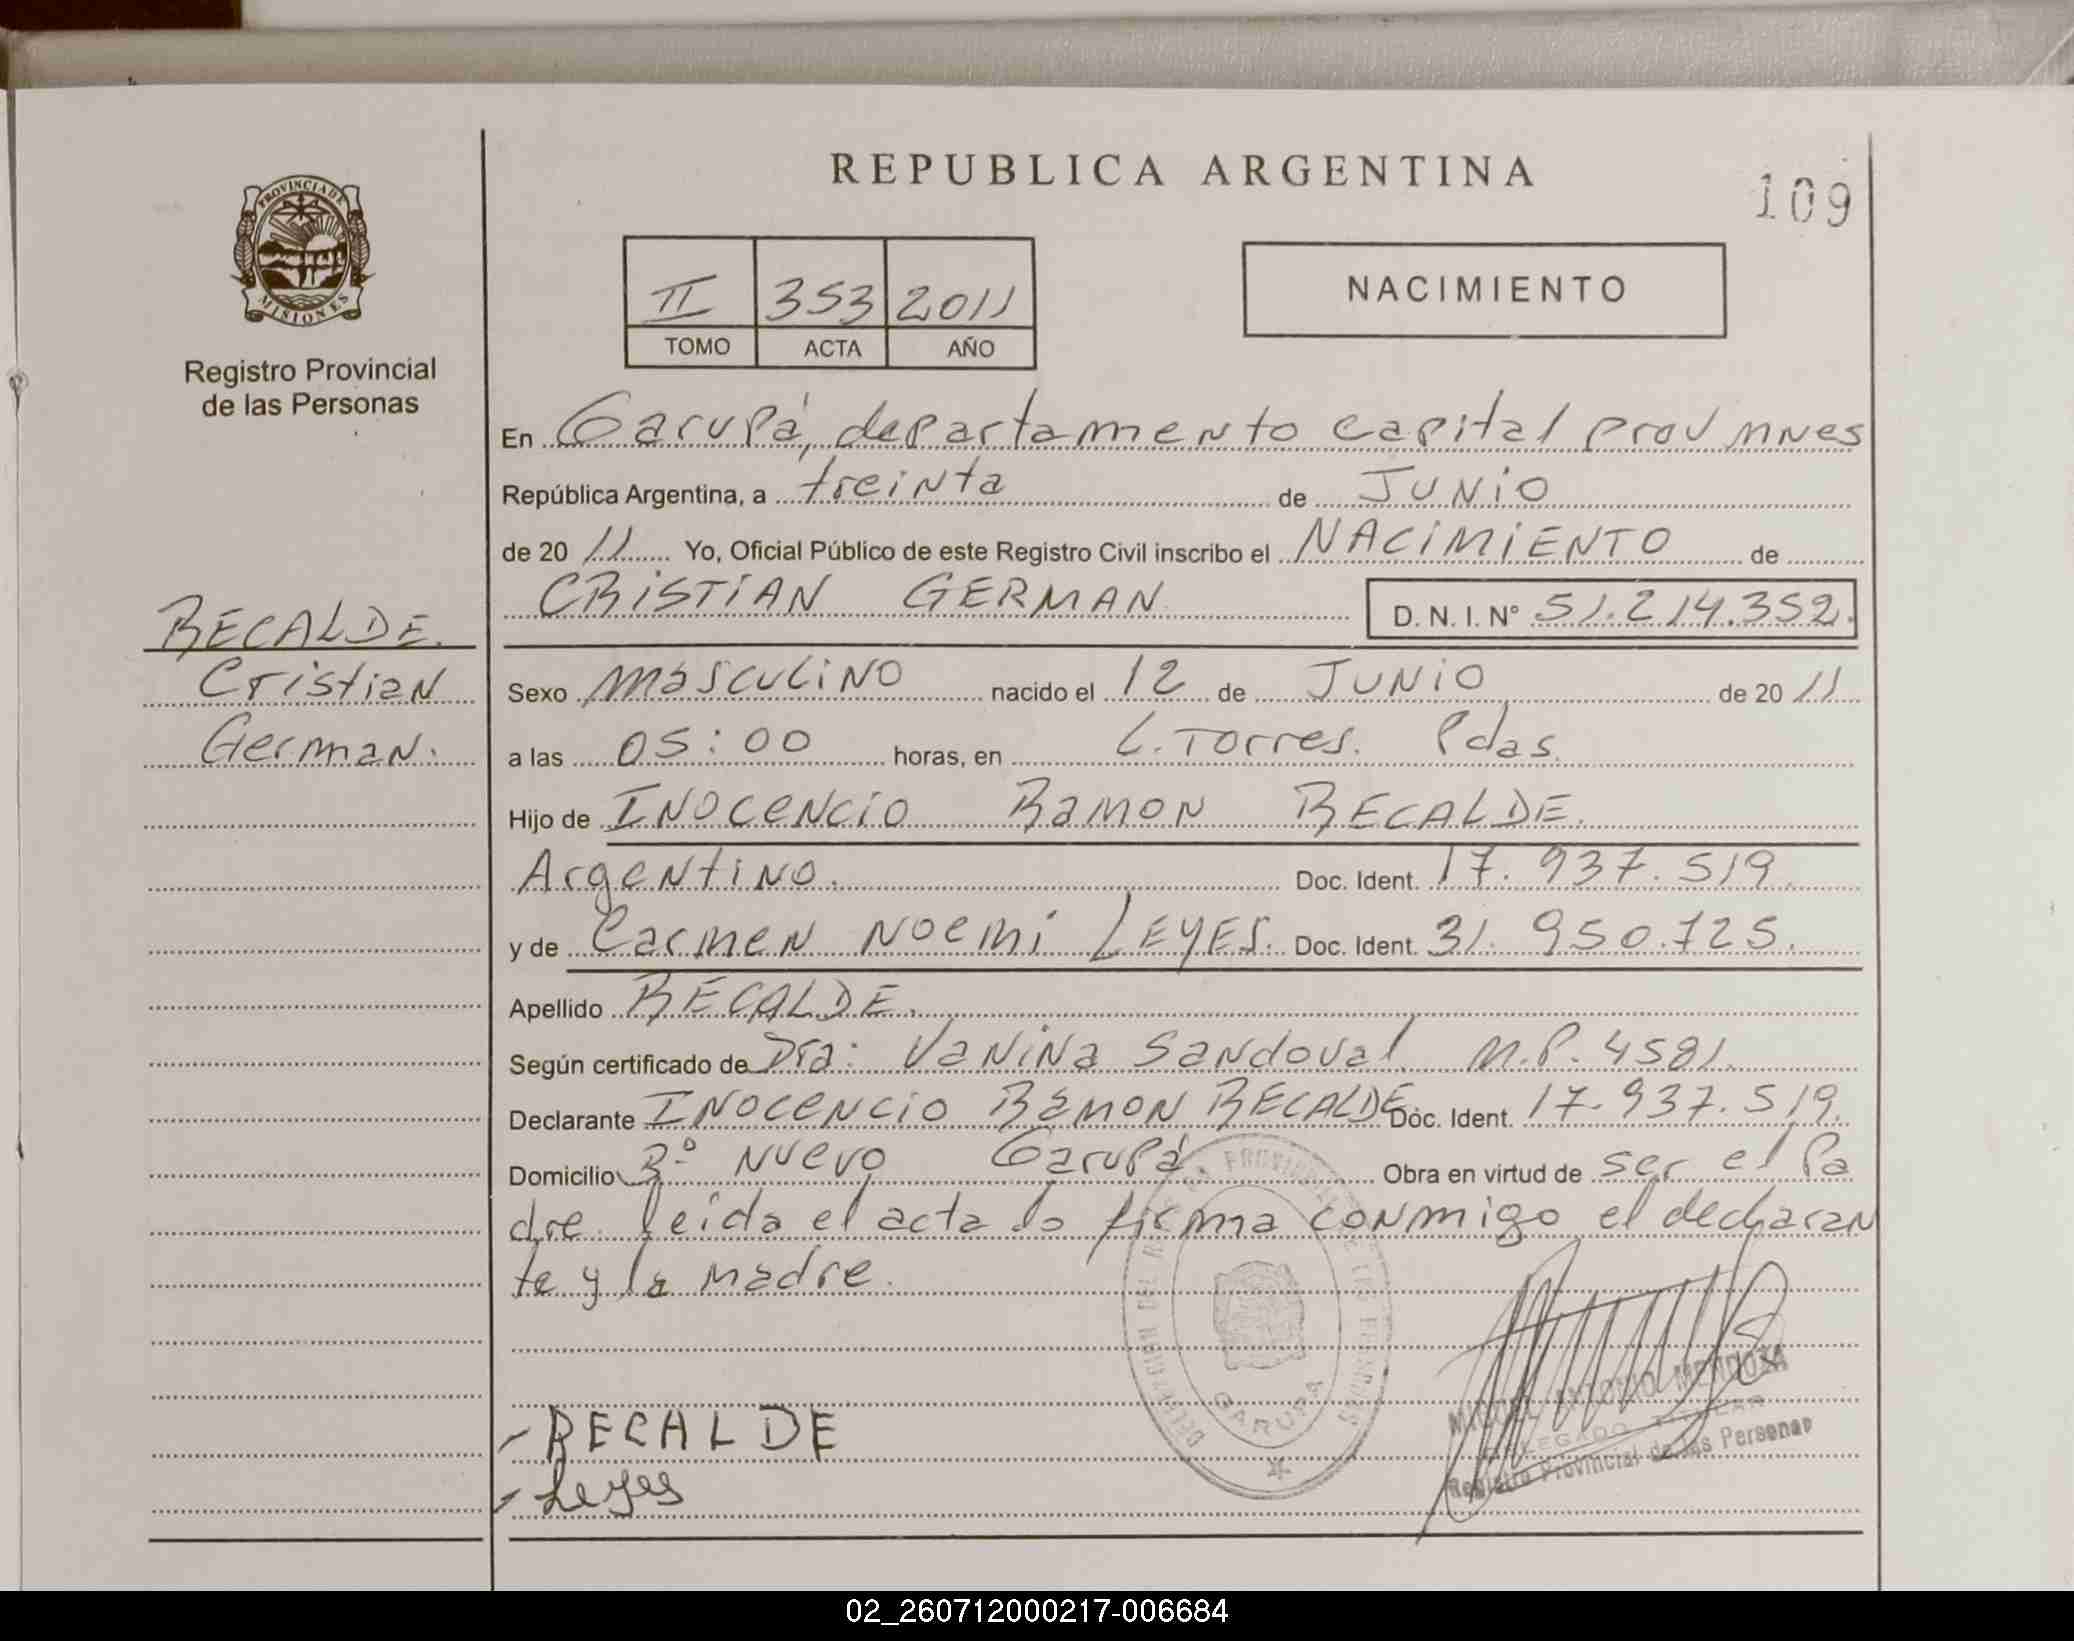 REPUBLICA ARGENTINA
109
PROVINCIA DE
MISIONES
Registro Provincial
de las Personas
II 353 2011
TOMO ACTA AÑO
NACIMIENTO
En Garupá, departamento capital prov mnes
República Argentina, a treinta de JUNIO
de 20 11 Yo, Oficial Público de este Registro Civil inscribo el NACIMIENTO de
CRISTIAN GERMAN D. N. I. Nº 51.214.352.
RECALDE.
Cristian
German.
Sexo masculino nacido el 12 de JUNIO de 20 11
a las 05:00 horas, en L. Torres. Pdas.
Hijo de INOCENCIO RAMON RECALDE.
Argentino. Doc. Ident. 17.937.519.
y de Carmen Noemi LEYES. Doc. Ident. 31.950.725.
Apellido RECALDE.
Según certificado de Dra: Vanina Sandoval M.P. 4581.
Declarante INOCENCIO RAMON RECALDE Doc. Ident. 17.937.519.
Domicilio Bº Nuevo Garupá Obra en virtud de ser el Pa
dre. leida el acta la firma conmigo el declaran
te y la madre.
- RECALDE
- Leyes
GARUPA
MIGUEL ANTONIO MENDOZA
DELEGADO TITULAR
Registro Provincial de las Personas
02_260712000217-006684